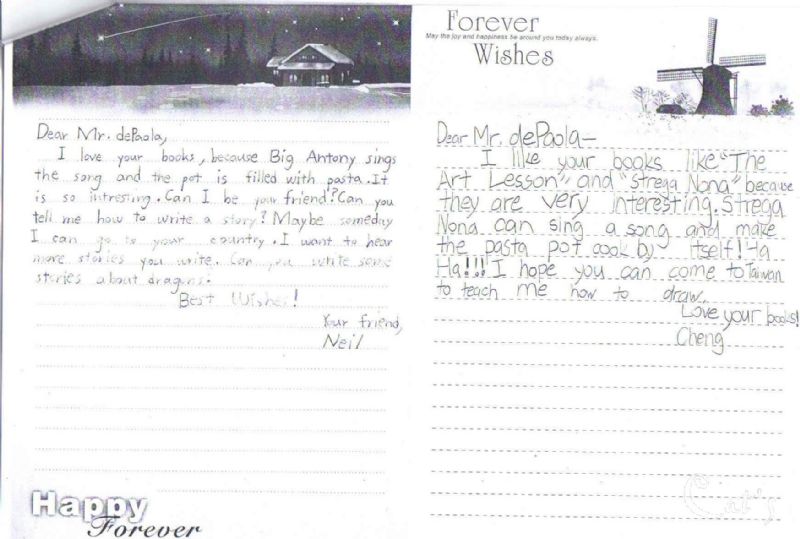 Dear Mr. dePaola,
I love your books, because Big Antony sings
the song and the pot is filled with pasta. It
is so intresting. Can I be your friend? Can you
tell me how to write a story? Maybe someday
I can go to your country. I want to hear
more stories you write. Can you write some
stories about dragons?
Best Wishes!
Your friend,
Neil
Happy
Forever
Forever
May the joy and happiness be around you today always.
Wishes
Dear Mr. dePaola—
I like your books like "The
Art Lesson", and "Strega Nona" because
they are very interesting. Strega
Nona can sing a song and make
the pasta pot cook by itself! Ha
Ha!!! I hope you can come to Taiwan
to teach me how to draw.
Love your books!
Cheng